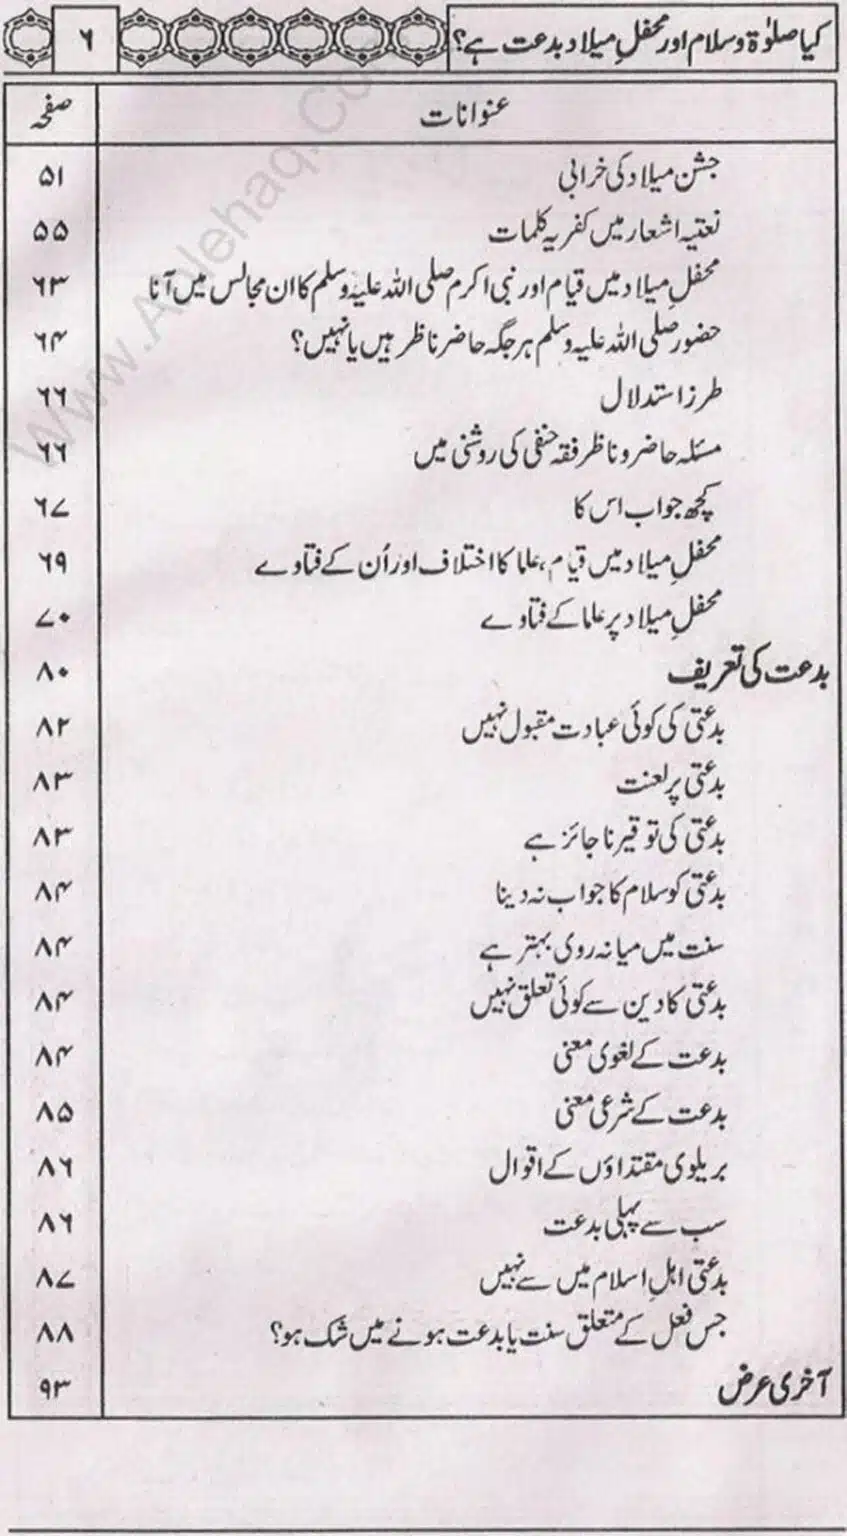 کیا صلوٰۃ وسلام اور محفلِ میلاد بدعت ہے؟ ۶
عنوانات صفحہ
جشن میلاد کی خرابی ۵۱
نعتیہ اشعار میں کفریہ کلمات ۵۵
محفلِ میلاد میں قیام اور نبی اکرم صلی اللہ علیہ وسلم کا ان مجالس میں آنا ۶۳
حضور صلی اللہ علیہ وسلم ہر جگہ حاضر ناظر ہیں یا نہیں؟ ۶۴
طرز استدلال ۶۶
مسئلہ حاضر و ناظر فقہ حنفی کی روشنی میں ۶۶
کچھ جواب اس کا ۶۷
محفلِ میلاد میں قیام، علما کا اختلاف اور اُن کے فتاوے ۶۹
محفلِ میلاد پر علما کے فتاوے ۷۰
بدعت کی تعریف ۸۰
بدعتی کی کوئی عبادت مقبول نہیں ۸۲
بدعتی پر لعنت ۸۳
بدعتی کی توقیر ناجائز ہے ۸۳
بدعتی کو سلام کا جواب نہ دینا ۸۴
سنت میں میانہ روی بہتر ہے ۸۴
بدعتی کا دین سے کوئی تعلق نہیں ۸۴
بدعت کے لغوی معنی ۸۴
بدعت کے شرعی معنی ۸۵
بریلوی مقتداؤں کے اقوال ۸۶
سب سے پہلی بدعت ۸۶
بدعتی اہلِ اسلام میں سے نہیں ۸۷
جس فعل کے متعلق سنت یا بدعت ہونے میں شک ہو؟ ۸۸
آخری عرض ۹۳
www.Ahlehaq.Com